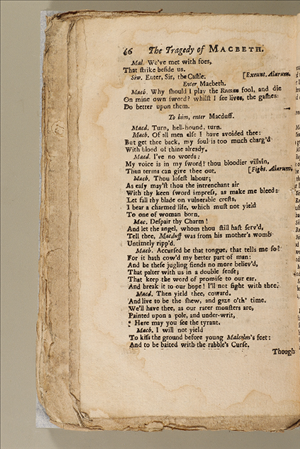 66 The Tragedy of MACBETH.
Mal. We've met with foes,
That strike beside us.
Siw. Enter, Sir, the Castle. [Exeunt. Alarum.
Enter Macbeth.
Macb. Why should I play the Roman fool, and die
On mine own sword? whilst I see lives, the gashes
Do better upon them.
To him, enter Macduff.
Macd. Turn, hell-hound, turn.
Macb. Of all men else I have avoided thee:
But get thee back, my soul is too much charg'd
With blood of thine already.
Macd. I've no words;
My voice is in my sword! thou bloodier villain,
Than terms can give thee out. [Fight. Alarum.
Macb. Thou losest labour;
As easy may'st thou the intrenchant air
With thy keen sword impress, as make me bleed:
Let fall thy blade on vulnerable crests,
I bear a charmed life, which must not yield
To one of woman born.
Mac. Despair thy Charm!
And let the angel, whom thou still hast serv'd,
Tell thee, Macduff was from his mother's womb
Untimely ripp'd.
Macb. Accursed be that tongue, that tells me so!
For it hath cow'd my better part of man:
And be these jugling fiends no more believ'd,
That palter with us in a double sense;
That keep the word of promise to our ear,
And break it to our hope! I'll not fight with thee.
Macd. Then yield thee, coward,
And live to be the shew, and gaze o'th' time.
We'll have thee, as our rarer monsters are,
Painted upon a pole, and under-writ,
Here may you see the tyrant.
Macb. I will not yield
To kiss the ground before young Malcolm's feet:
And to be baited with the rabble's Curse.
Though